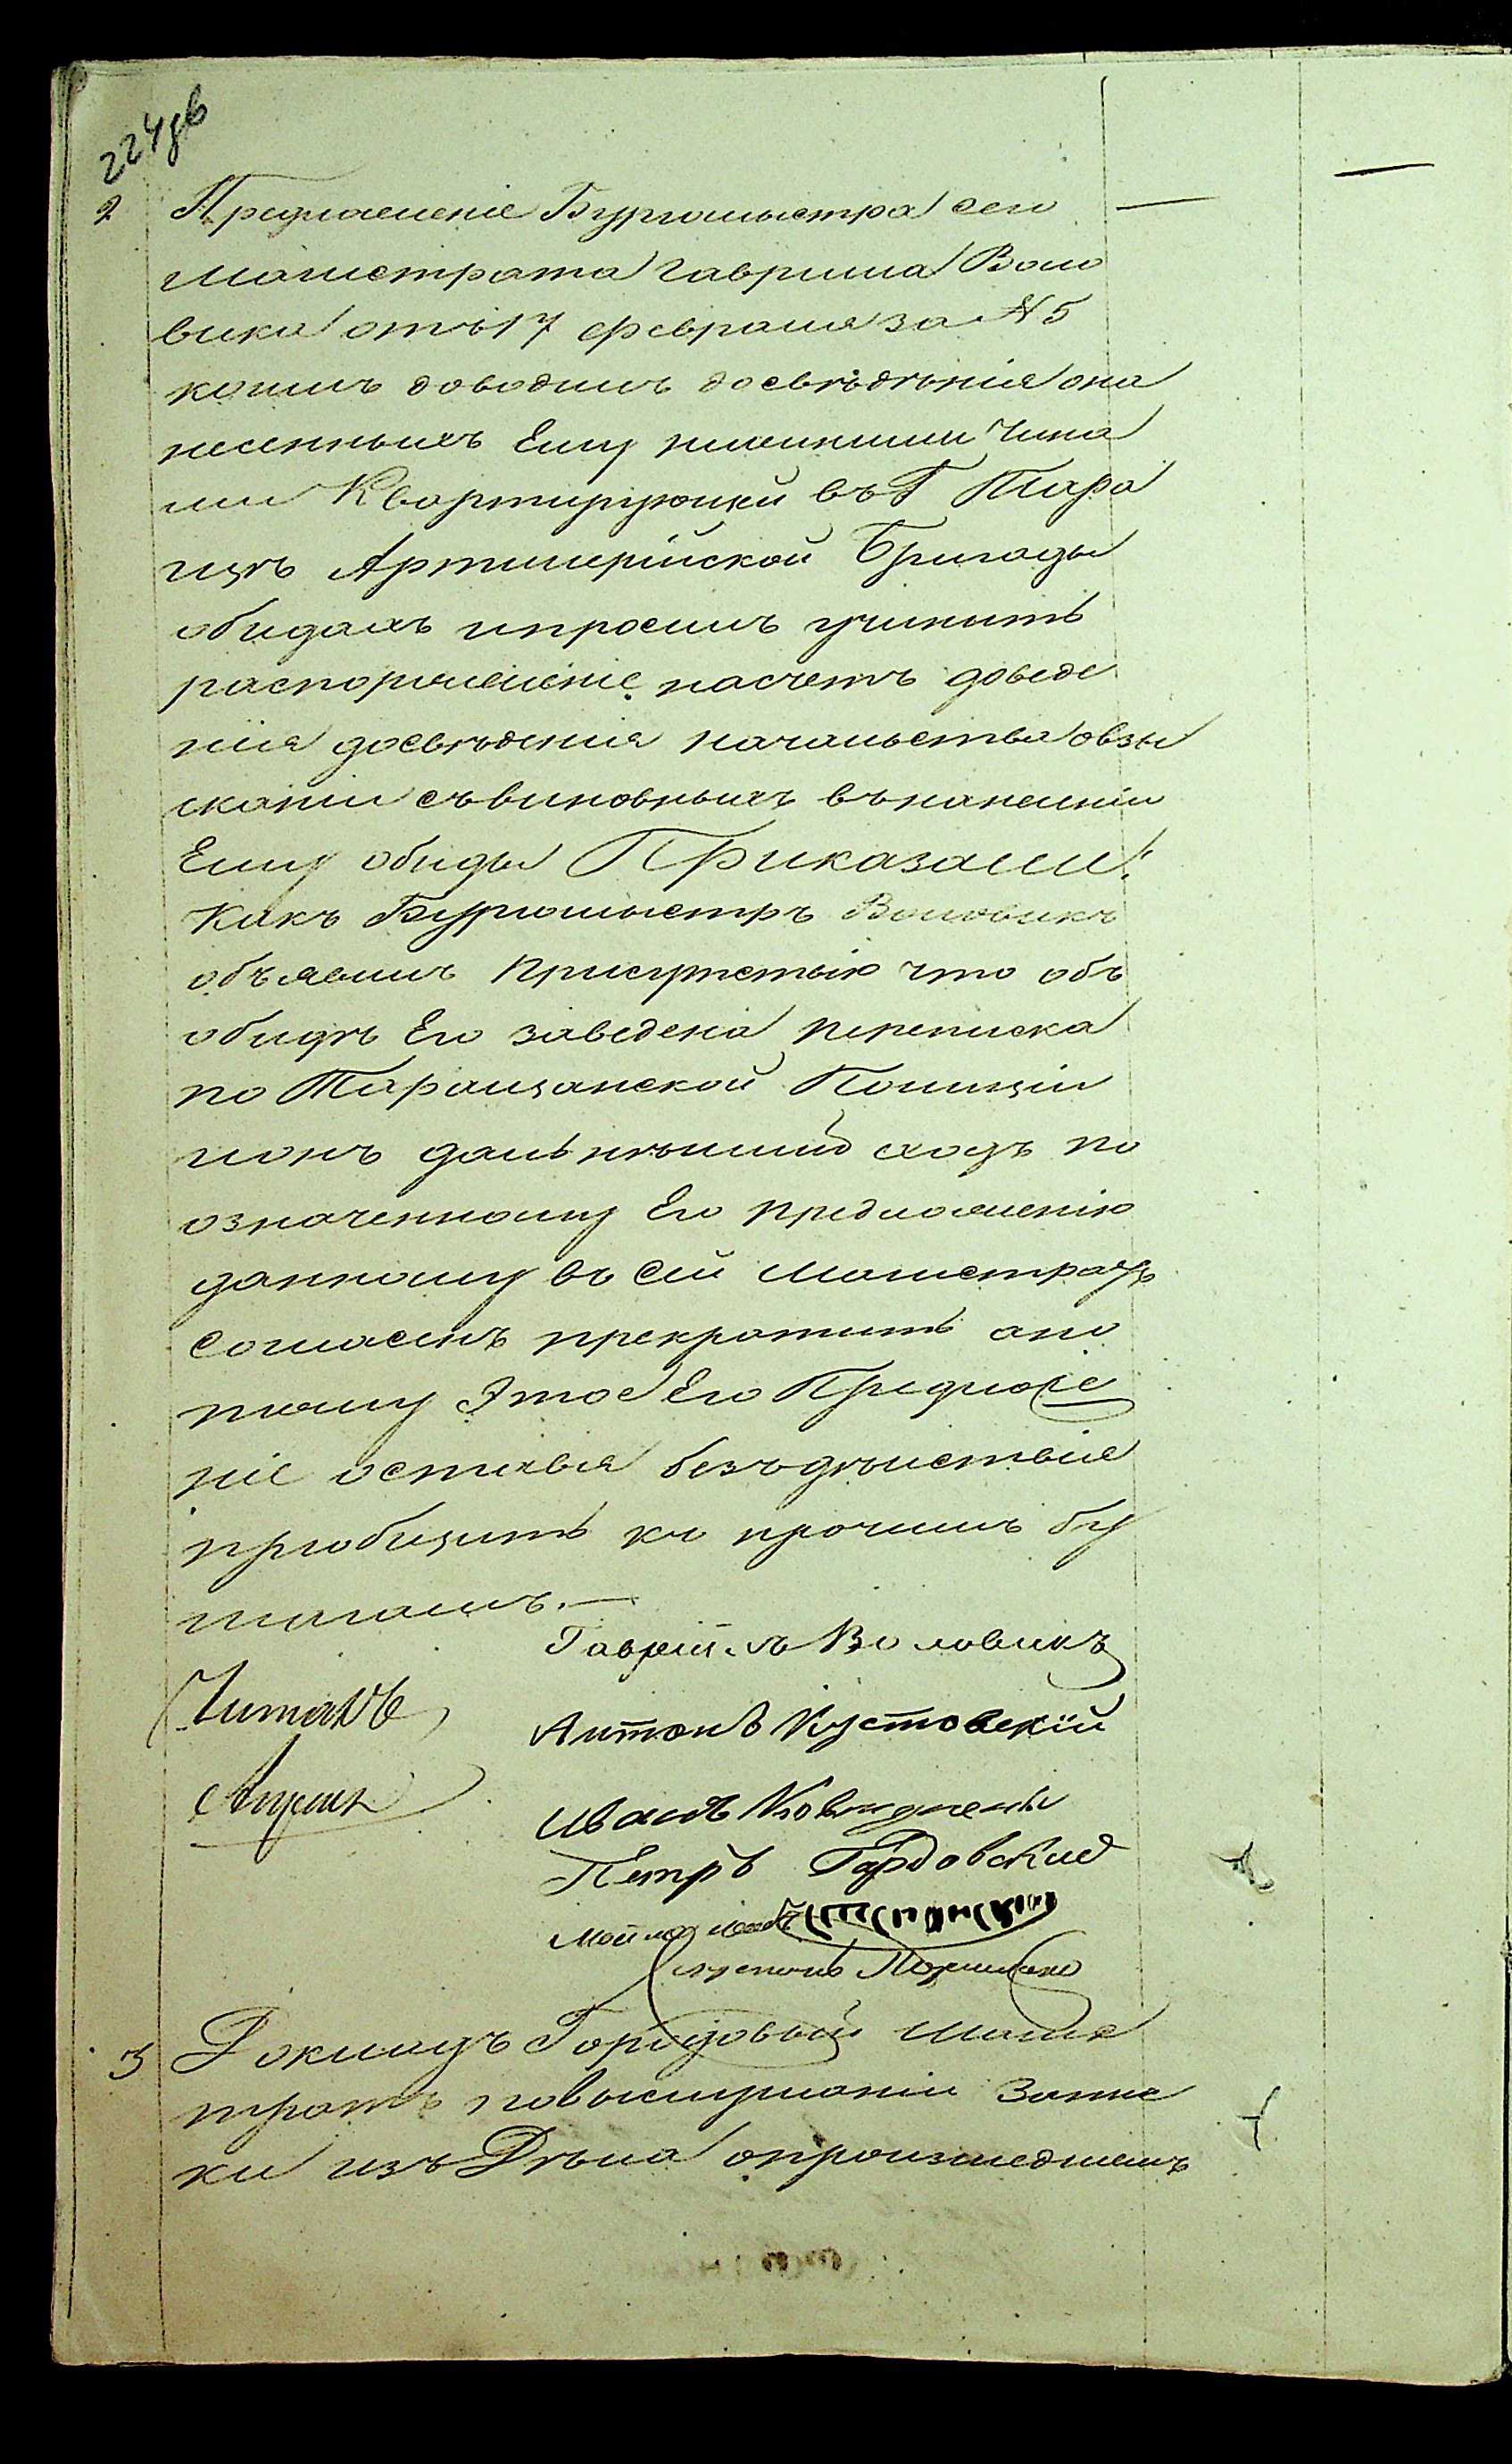 224 зв
2 Предложеніе Бургомыстра сего
Магистрата Гаврила Воло
вика отъ 17 февраля за № 5
коимъ доводитъ досвѣдѣнія она
несенныхъ Ему нижними Чина
ми Квартирующей въ Г Тара
щѣ Артилерійской Бригады
обидахъ ипроситъ учинить
распоряженіе насчетъ доведе
нія досвѣденія начальства овзы
сканіи съвиновныхъ въ нанесеніи
Ему обиды Приказали:
Какъ Бургомыстръ Воловикъ
объявилъ Присутствію что объ
обидѣ Его заведена переписка
по Таращанской Полиціи
ионъ дальнѣйшій ходъ по
означенному Его предложенію
данному въ Сей Магистратъ
Согласенъ прекратить апо
тому Этое Его Предложе
ніе оставя безъдѣйствія
пріобщить къ прочимъ бу
магамъ. —
Гавріилъ Воловикъ
Читалъ
Антонъ Кустовскій
Иванъ
Петръ Гардовский
3 Докладъ Городовый Магис
тратъ повыслушаніи Запис
ки изъ Дѣла опроизшедшемъ